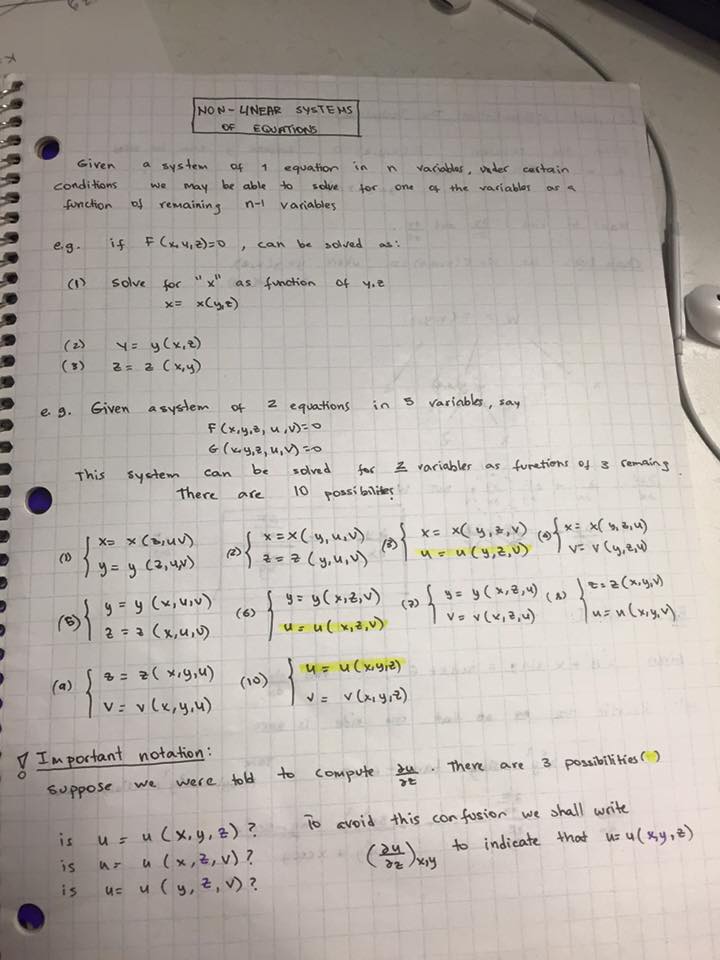 NON-LINEAR SYSTEMS
OF EQUATIONS
Given a system of 1 equation in n variables, under certain
conditions we may be able to solve for one of the variables as a
function of remaining n-1 variables
e.g. if F(x,y,z)=0, can be solved as:
(1) solve for "x" as function of y,z
x= x(y,z)
(2) y= y(x,z)
(3) z= z(x,y)
e.g. Given a system of 2 equations in 5 variables, say
F(x,y,z,u,v)=0
G(x,y,z,u,v)=0
This system can be solved for 2 variables as functions of 3 remaing.
There are 10 possibilites
(1) { x= x(z,u,v) (2) { x=x(y,u,v) (3) { x= x(y,z,v) (4) { x= x(y,z,u)
y= y(z,u,v) z= z(y,u,v) u= u(y,z,v) v= v(y,z,u)
(5) { y= y(x,u,v) (6) { y= y(x,z,v) (7) { y= y(x,z,u) (8) { z=z(x,y,v)
z= z(x,u,v) u= u(x,z,v) v= v(x,z,u) u= u(x,y,v)
(9) { z= z(x,y,u) (10) { u= u(x,y,z)
v= v(x,y,u) v= v(x,y,z)
! Important notation:
Suppose we were told to compute ∂u/∂z. There are 3 possibilities( )
is u= u(x,y,z)? To avoid this confusion we shall write
is u= u(x,z,v)? (∂u/∂z)x,y to indicate that u=u(x,y,z)
is u= u(y,z,v)?